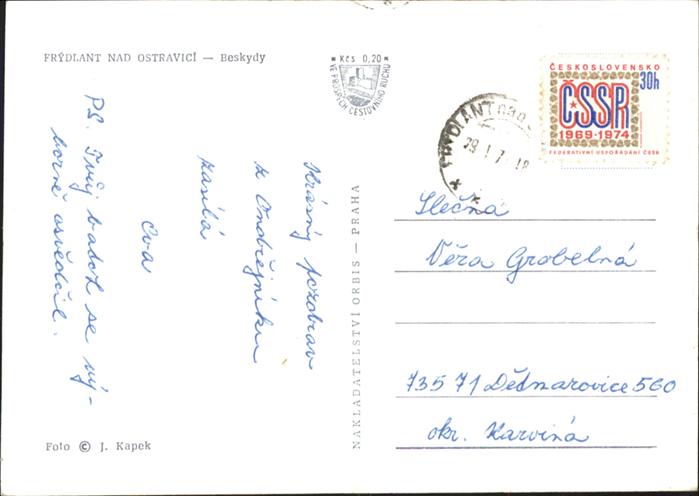 FRÝDLANT NAD OSTRAVICÍ — Beskydy
* Kčs 0,20 *
VE PROSPĚCH CESTOVNÍHO RUCHU
ČESKOSLOVENSKO
30h
ČSSR
1969·1974
FEDERATIVNÍ USPOŘÁDÁNÍ ČSSR
FRÝDLANT nad
Krásný pozdrav
z Ondřejníku
zasílá
Eva
PS. Tvůj batoh se vý-
borně osvědčil.
NAKLADATELSTVÍ ORBIS — PRAHA
Slečna
Věra Grobelná
735 71 Dětmarovice 560
okr. Karviná
Foto © J. Kapek